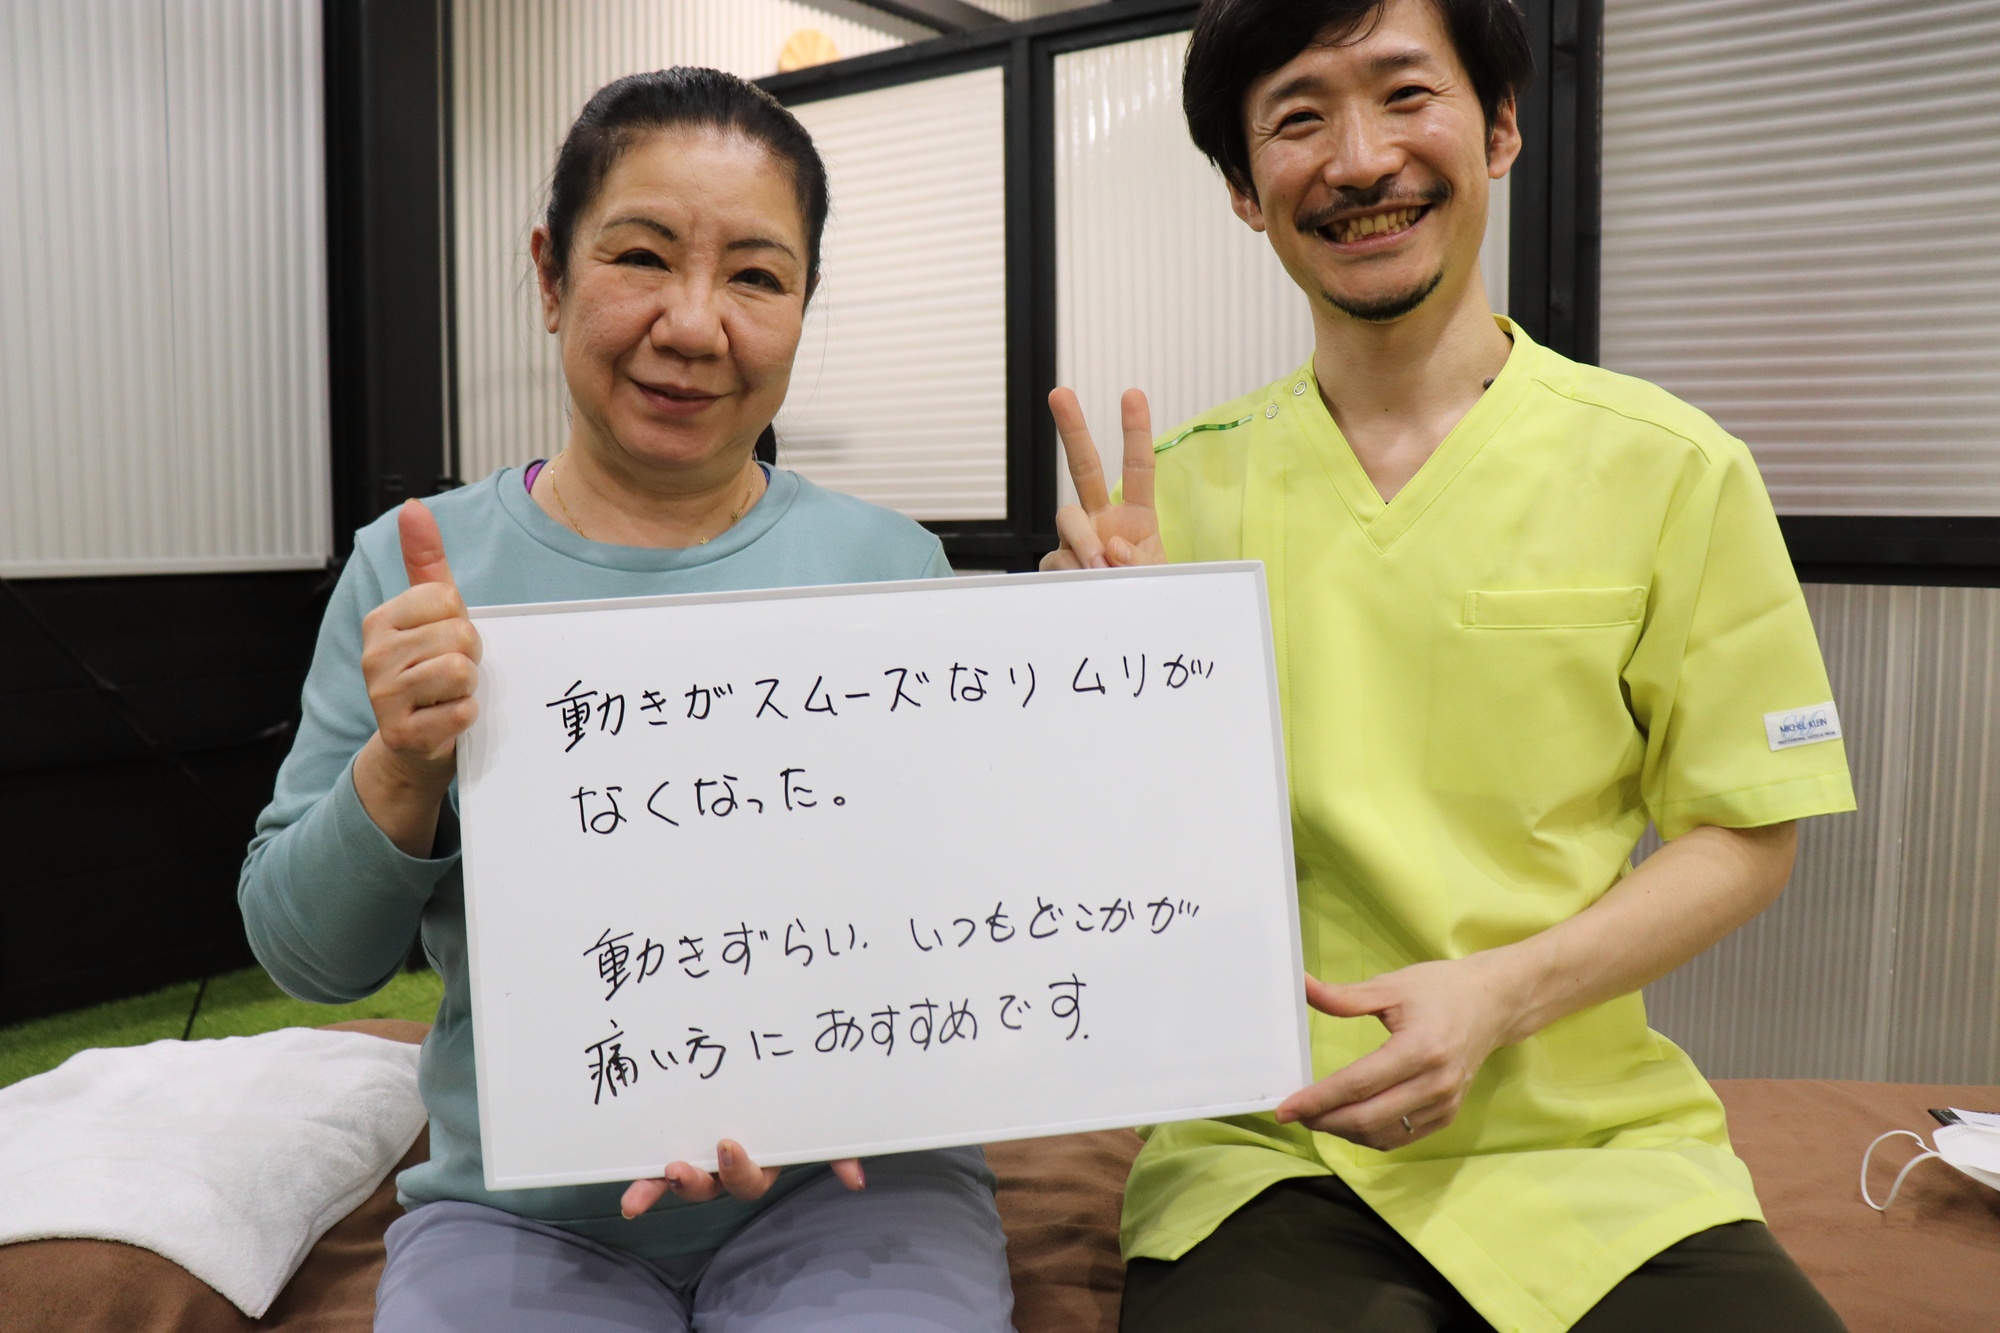 動きがスムーズなり ムリが
なくなった。
動きずらい. いつもどこかが
痛い方に おすすめです.
MICHEL KLEIN